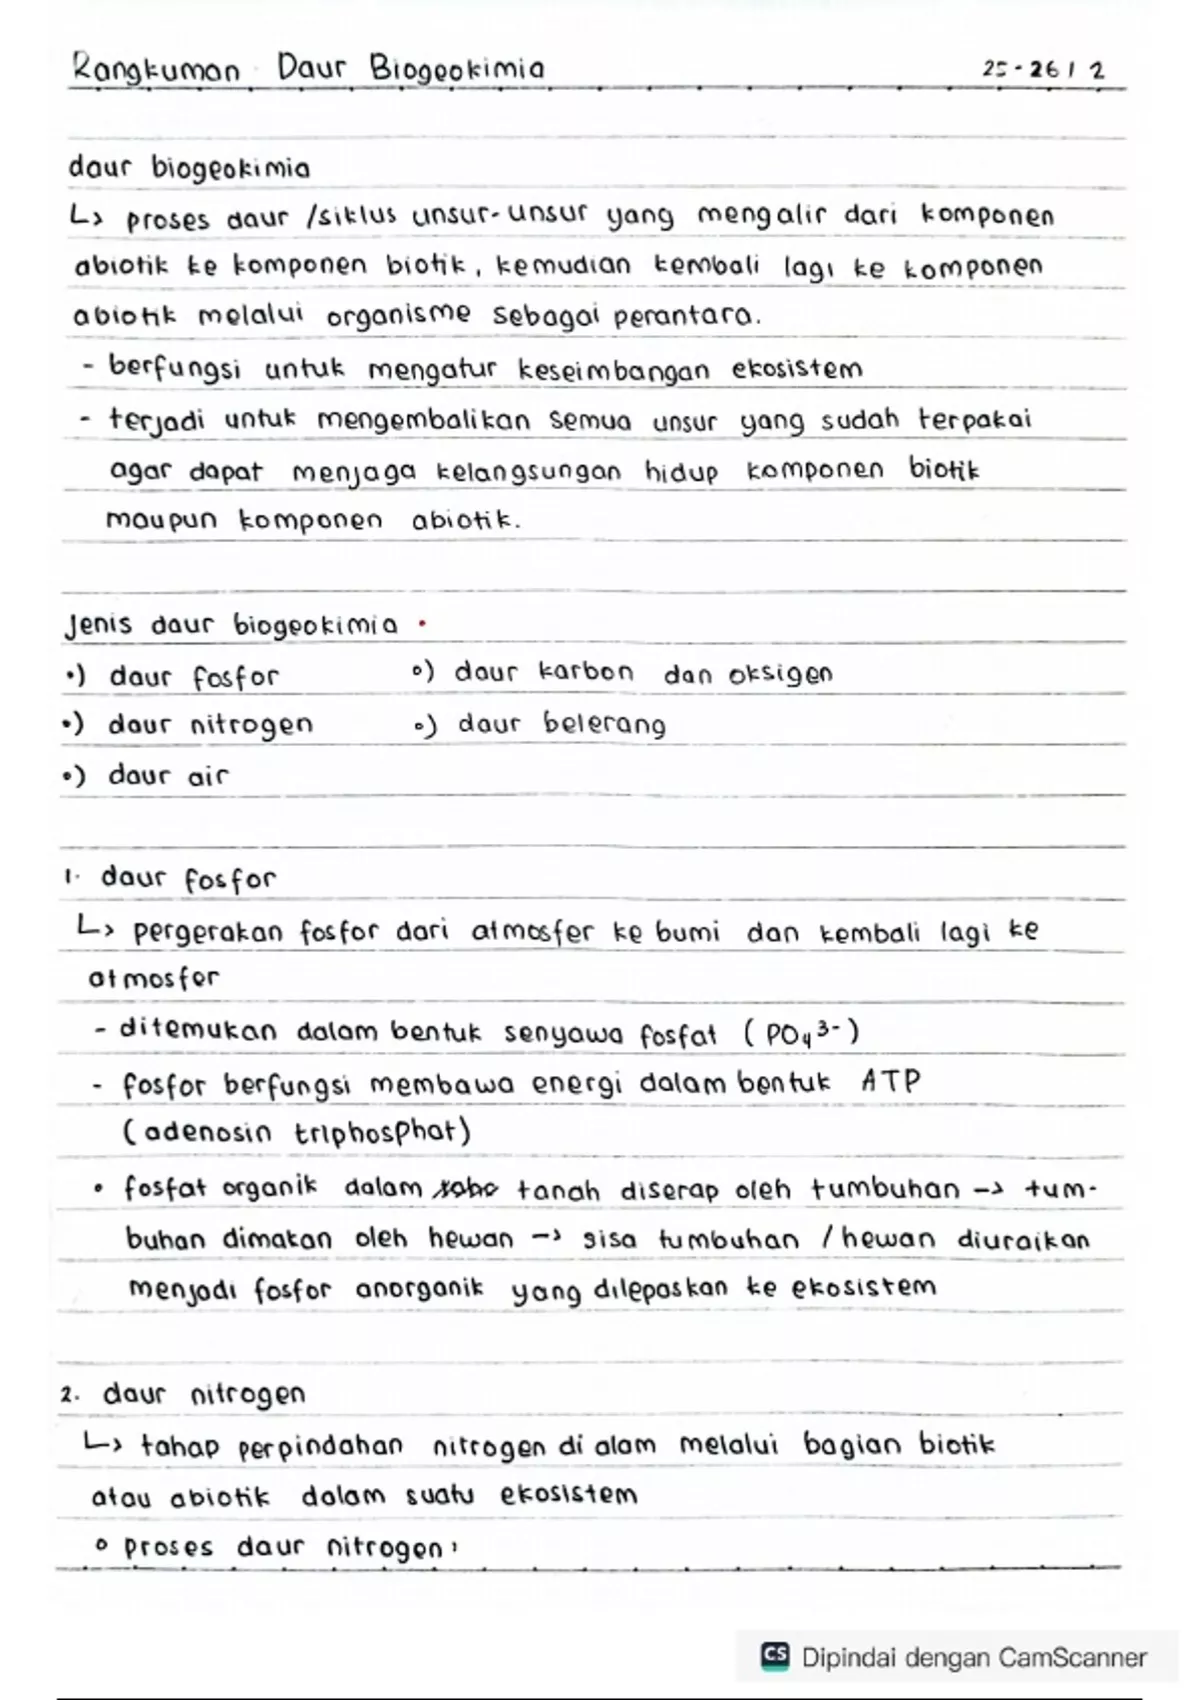 Rangkuman Daur Biogeokimia 25-26 / 2
daur biogeokimia
↳ proses daur /siklus unsur-unsur yang mengalir dari komponen
abiotik ke komponen biotik, kemudian kembali lagi ke komponen
abiotik melalui organisme sebagai perantara.
- berfungsi untuk mengatur keseimbangan ekosistem
- terjadi untuk mengembalikan semua unsur yang sudah terpakai
agar dapat menjaga kelangsungan hidup komponen biotik
maupun komponen abiotik.
Jenis daur biogeokimia .
•) daur fosfor
•) daur karbon dan oksigen
•) daur nitrogen
•) daur belerang
•) daur air
1. daur fosfor
↳ pergerakan fosfor dari atmosfer ke bumi dan kembali lagi ke
atmosfer
- ditemukan dalam bentuk senyawa fosfat (PO₄³⁻)
- fosfor berfungsi membawa energi dalam bentuk ATP
(adenosin triphosphat)
• fosfat organik dalam tanah diserap oleh tumbuhan -> tum-
buhan dimakan oleh hewan -> sisa tumbuhan / hewan diuraikan
menjadi fosfor anorganik yang dilepaskan ke ekosistem
2. daur nitrogen
↳ tahap perpindahan nitrogen di alam melalui bagian biotik
atau abiotik dalam suatu ekosistem
• proses daur nitrogen :
CS Dipindai dengan CamScanner